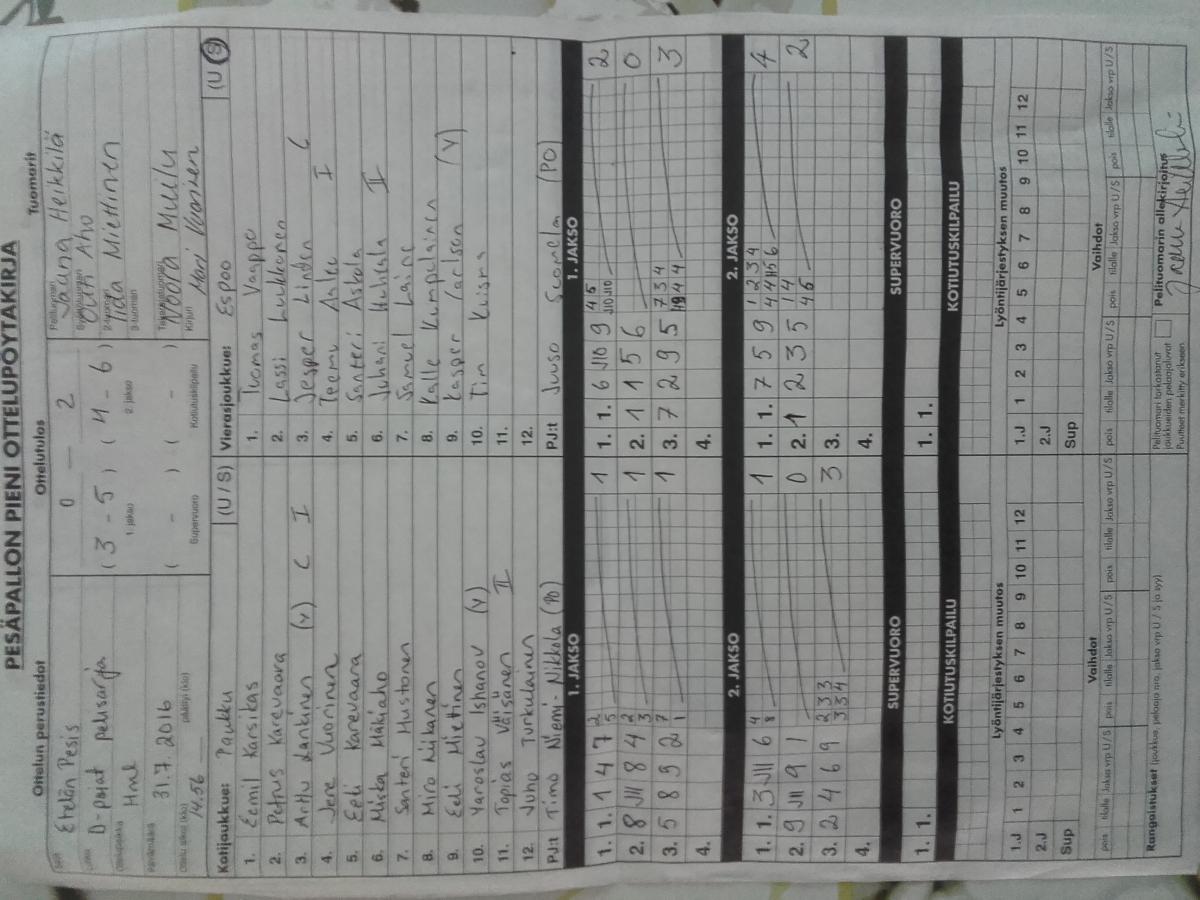 PESÄPALLON PIENI OTTELUPÖYTÄKIRJA
Ottelun perustiedot Ottelutulos Tuomarit
Etelän Pesis
D-pojat pelisarja
Hml
31.7.2016
14.56
0 — 2
(3 - 5) (4 - 6)
1. jakso 2. jakso
( - ) ( - )
Supervuoro Kotiutuskilpailu
Pelituomari Jauna Heikkilä
Outi Aho
2-tuomari Iida Miettinen
3-tuomari
Takatuomari Noora Muilu
Kirjuri
Kotijoukkue: Paukku (U / S)
1. Eemil Karsikas
2. Petrus Karevaara
3. Arttu Lankinen (V) C I
4. Jere Vuorinen
5. Eeli Karevaara
6. Miika Mäkiaho
7. Santeri Hustonen
8. Miro Liikanen
9. Eeli Miettinen
10. Yaroslav Ishanov (V)
11. Topias Väisänen II
12. Juho Turkulainen
PJ:t Timo Niemi-Nikkola (PO)
Vierasjoukkue: Espoo (U / S)
1. Tuomas Vaappo
2. Lassi Luukkonen
3. Jesper Linden C
4. Teemu I
5. Santeri Askola
6. Juhani Huhtala II
7. Samuel Laine
8. Kalle Kumpulainen
9. Kasper Carlson (V)
10. Tim Kuisma
11.
12.
PJ:t Juuso Suomela (PO)
1. JAKSO 1. JAKSO
1. 1. 1 4 7 2 5 1
2. 8 J11 8 4 2 3 1
3. 5 8 9 2 7 1 1
4.
1. 1. 6 J10 9 4 5 J10 J10 2
2. 1 1 5 6 0
3. 7 2 9 5 7 3 4 4 4 3
4.
2. JAKSO 2. JAKSO
1. 1. 3 J11 6 4 8 1
2. 9 J11 9 1 0
3. 2 4 6 9 2 3 3 3 3 4 3
4.
1. 1. 7 5 9 1 2 3 4 4 4 5 6 4
2. 1 2 3 5 1 4 4 5 2
3.
4.
SUPERVUORO SUPERVUORO
1. 1. 1. 1.
KOTIUTUSKILPAILU KOTIUTUSKILPAILU
Lyöntijärjestyksen muutos Lyöntijärjestyksen muutos
1.J 1 2 3 4 5 6 7 8 9 10 11 12 1.J 1 2 3 4 5 6 7 8 9 10 11 12
2.J 2.J
Sup Sup
Vaihdot Vaihdot
pois tilalle Jakso vrp U/S pois tilalle Jakso vrp U/S pois tilalle Jakso vrp U/S pois tilalle Jakso vrp U/S pois tilalle Jakso vrp U/S pois tilalle Jakso vrp U/S
Rangaistukset (joukkue, pelaaja nro, jakso vrp U / S ja syy)
Pelituomari tarkastanut joukkueiden pelaajaluvat
Puutteet merkitty erikseen.
Pelituomarin allekirjoitus